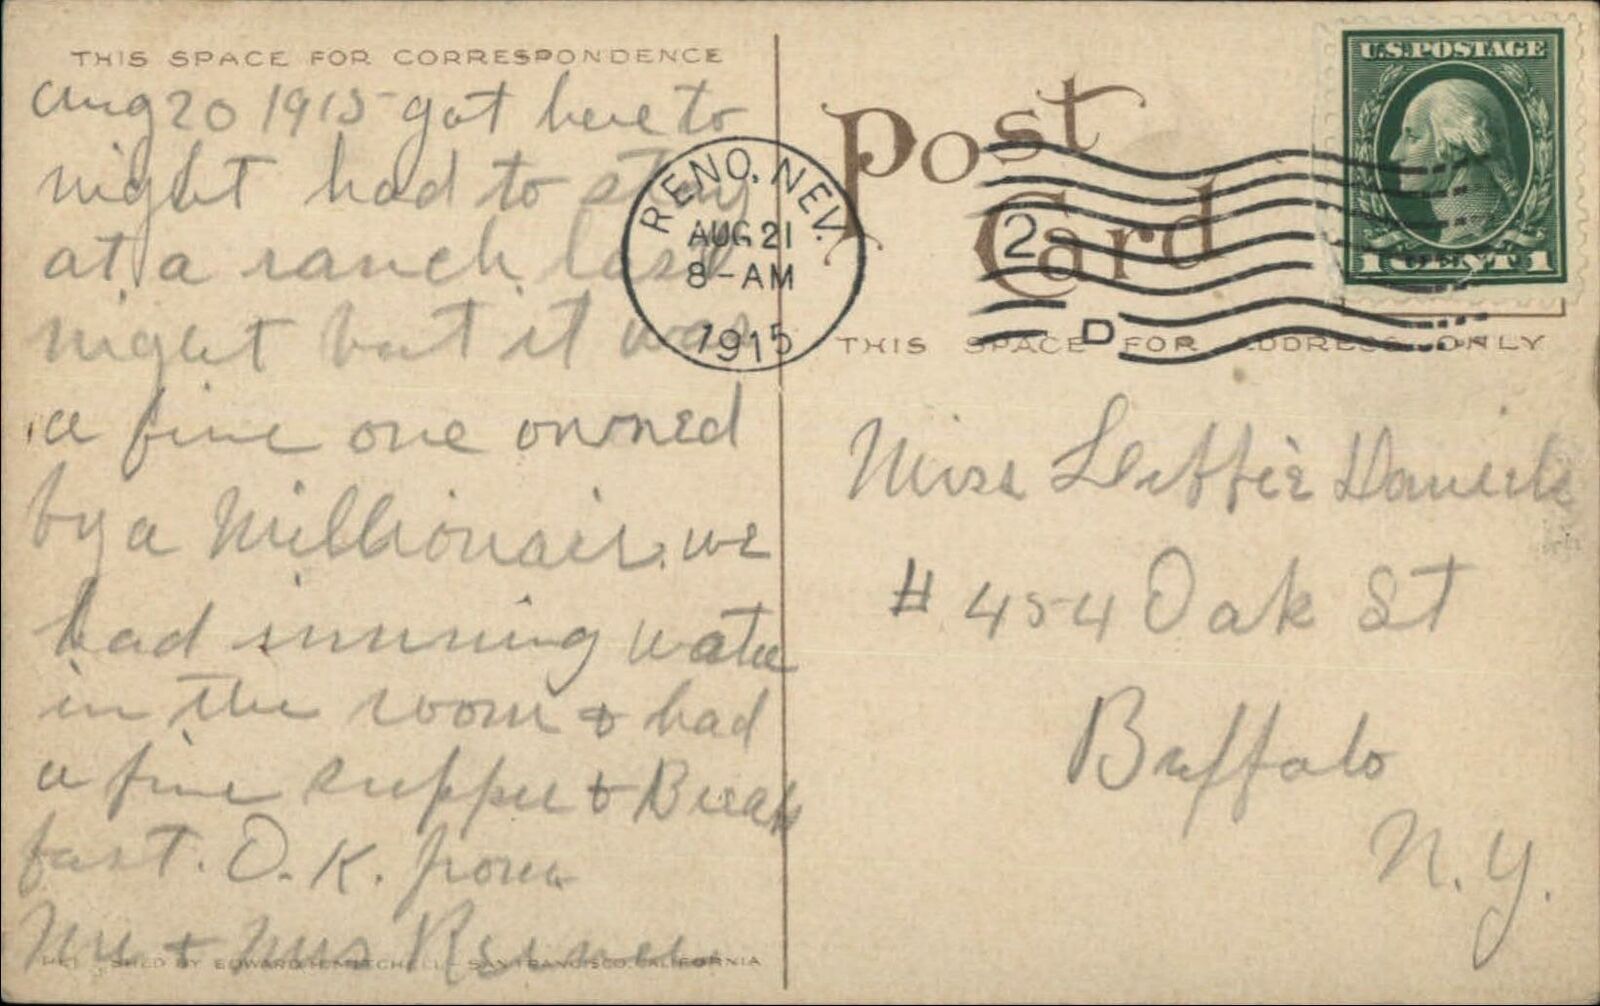 THIS SPACE FOR CORRESPONDENCE
Aug 20 1915 got here to
night had to stay
at a ranch last
night but it was
a fine one owned
by a Millionair. we
had running water
in the room & had
a fine supper & Break
fast. O.K. from
Mr & Mrs
PUBLISHED BY EDWARD H. MITCHELL - SAN FRANCISCO, CALIFORNIA
Post
Card
RENO, NEV.
AUG 21
8-AM
1915
2
D
U.S. POSTAGE
1 CENT 1
THIS SPACE FOR ADDRESS ONLY
Miss Daniels
# 454 Oak St
Buffalo
N.Y.